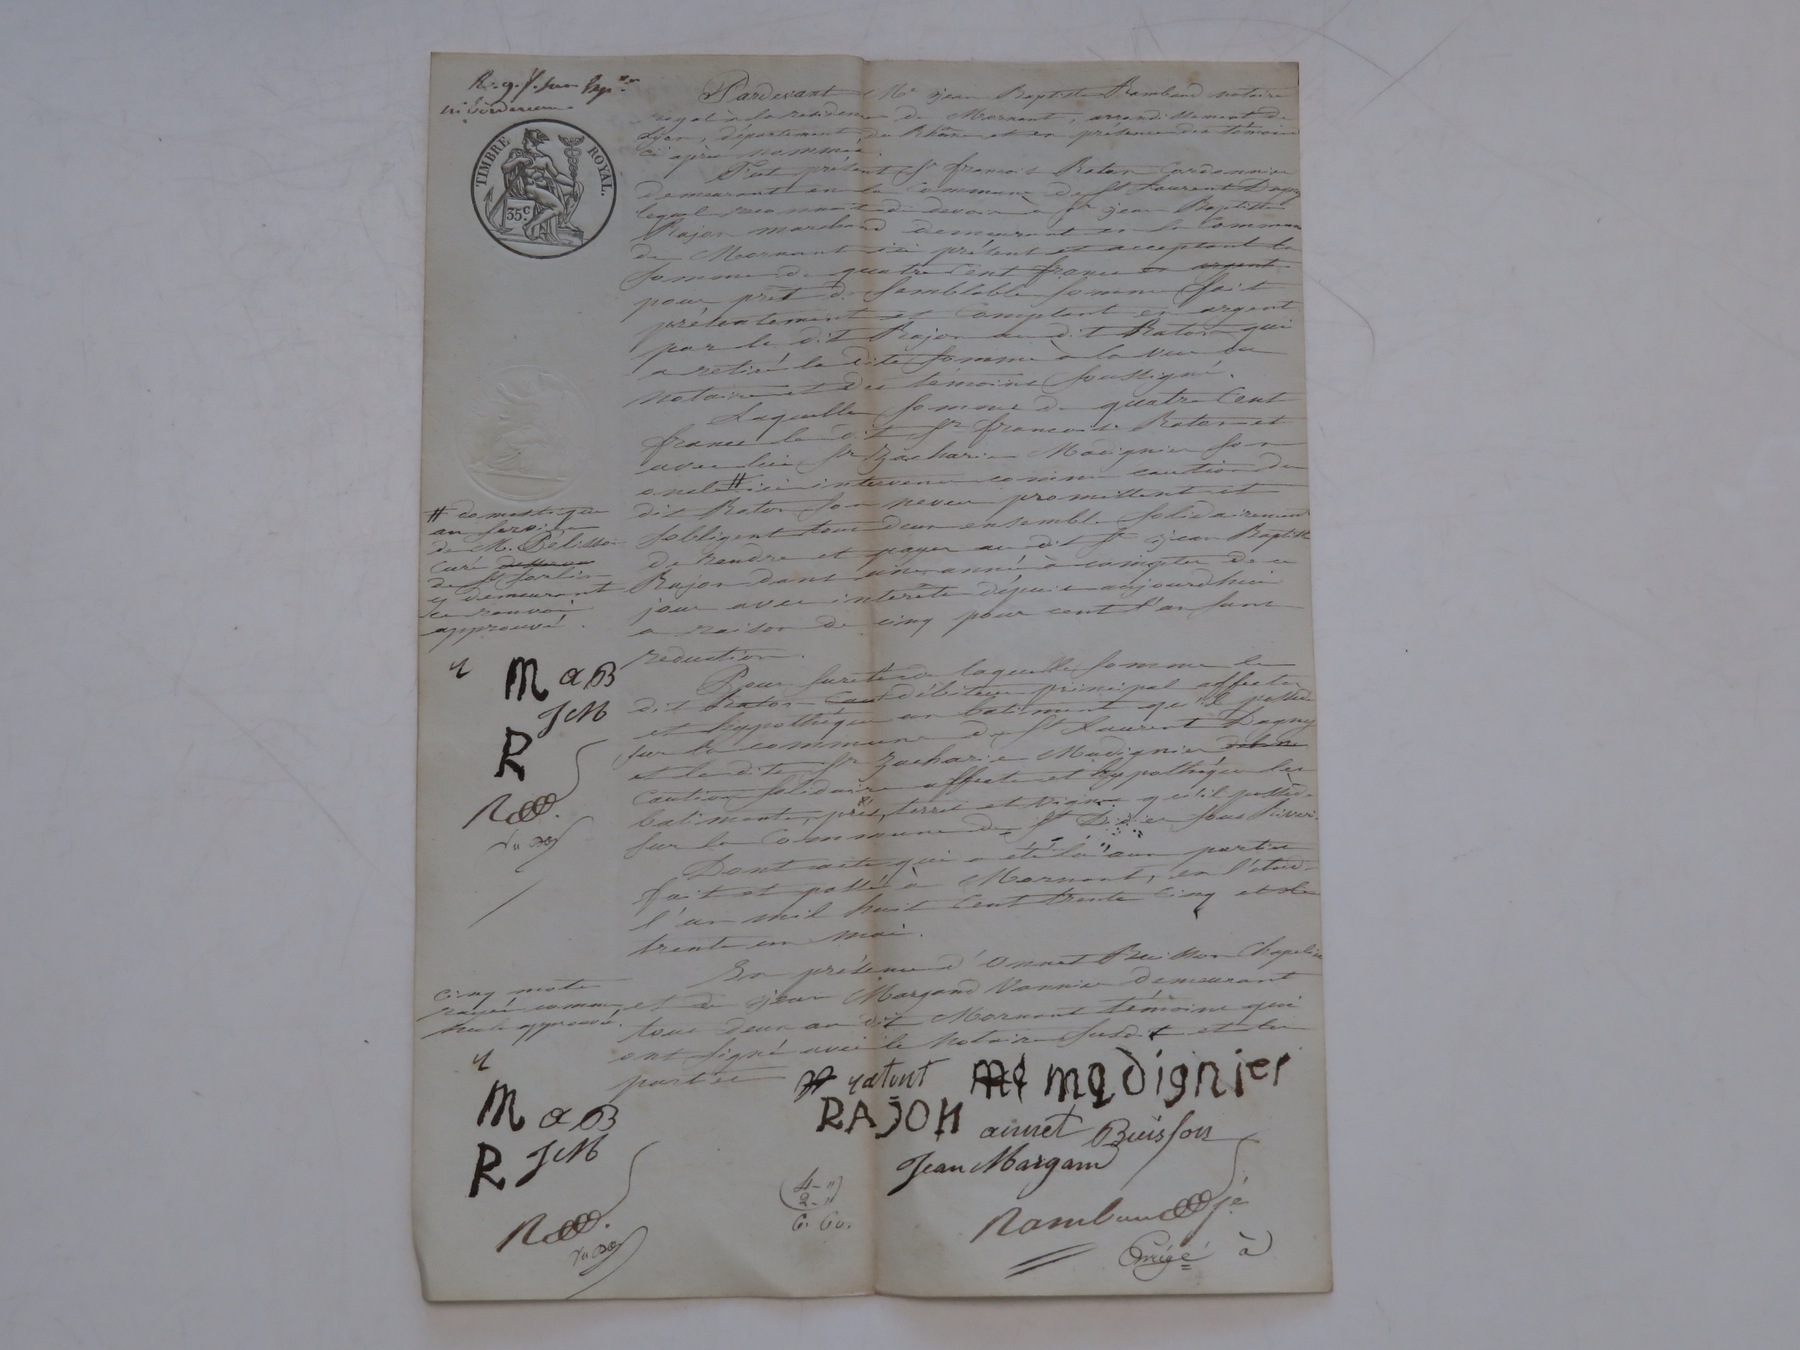 TIMBRE ROYAL.
35c
Pardevant Me jean Baptiste Rambaud notaire
royal à la residence de Mornant, arrondissement de
Lyon, département du Rhône et en présence des témoins
ci après nommés.
Fut présent Sr francois Raton Cordonnier
demeurant en la Commune de St Laurent Dagny
lequel reconnait de devoir à Sr jean Baptiste
Rajon marchand demeurant en la Commune
de Mornant ici présent et acceptant la
somme de quatre Cent francs en argent
pour pret de semblable somme fait
présentement et comptant en argent
par le dit Rajon au dit Raton qui
a retiré la dite somme à la vue du
notaire et des témoins soussigné.
Laquelle somme de quatre Cent
francs le dit Sr francois Raton et
avec lui Sr Zacharie Madignier son
oncle # ici intervenu comme caution du
dit Raton son neveu promettent et
sobligent tous deux ensemble solidairement
de rendre et payer au dit Sr jean Baptiste
Rajon dans une année à compter de ce
jour avec intérêts dépuis aujourdhui
a raison de cinq pour cent l'an sans
reduction.
Pour sureté de laquelle somme le
dit Raton débiteur principal affecte
et hypothéque un batiment qu'il possède
sur la commune de St Laurent Dagny
et le dit Sr Zacharie Madignier
caution solidaire affecte et hypothéque les
batiments, prés, terres et vignes qu'il possède
sur la Commune de St Didier sous Riverie.
Dont acte qui a été lu aux parties
fait et passé à Mornant, en l'étude
l'an mil huit Cent trente Cinq et le
trente un mai.
En présence d' Onnet Buisson Chapelier
et de jean Margand Vannier demeurant
tous deux au dit Mornant témoins qui
ont signé avec le notaire susdit et les
parties
# domestique
au service
de M. Pélisson
curé
de St Sorlin
y demeurant
ce renvoi
approuvé.
M a,B
JM
R
cinq mots
rayés comme
nuls approuvé.
M a,B
R JM
ratont
madignier
RAJON
aunet Buisson
Jean Margand
Rambaud
4-"
2-"
6. 60.